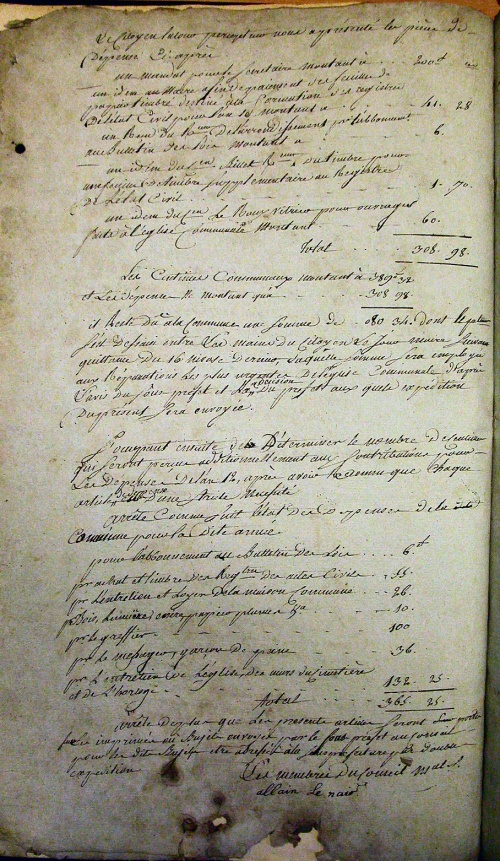 Le Citoyen percepteur nous a présenté les pièces de
Dépense Ci après
un mandat pour le secrétaire montant à . . . 200
un idem au Maire afin de payement des feuilles de
papier timbré destiné à la formation des registres
De l'état Civil pour l'an montant à . . . 41. 28
un bon du arrondissement pr l'abbonement
au Bulletin des Lois montant à 6.
un idem du timbre pour
une feuille de timbre supplémentaire au Registre
De l'état Civil . . . 1. 70.
un idem du Le Roux Vitrier pour ouvrages
faits à l'église Communale montant 60.
Total 308. 98.
Les Centimes Communaux montant à 389 32
et Les Dépenses montant qu'à . . . 308 98.
il Reste dû à la Commune une somme de 080 34. dont le
s'est dessaisi entre les mains du Citoyen maire suivant
quittance du 16 nivose dernier, laquelle somme sera employée
aux Réparations les plus urgentes de l'église Communale d'après
l'avis du sous préfet et la décision du préfet aux quels expédition
du présent sera envoyée.
S'occupant ensuite de Déterminer le nombre de centimes
qui seront perçus additionnellement aux Contributions pour
Les Dépenses de l'an 12, après avoir reconnu que chaque
article est d'une stricte nécessité
arrête Comme suit l'état des Dépenses de la
Commune pour la dite année
pour l'abbonnement au Bulletin des Lois . . . 6
pr achat et timbre des Reg.tres des actes Civils . . 35.
pr L'entretien et Loyer de la maison Commune . . . 26.
pr Bois, Lumières, encre papier plumes . . 10.
pr Le greffier . . . 100
pr Le messager, garçon de peine 36.
pr L'entretien de L'église, des murs du Cimetière
et de L'horloge . . . 132. 25.
Total . . . 365. 25.
arrête De plus que Les présents articles seront portés
sur imprimés du Budjet envoyés par le sous préfet au
pour Le dit Budjet être adressé à la sous préfecture, par double
expédition
Les membres du Conseil
allain Le